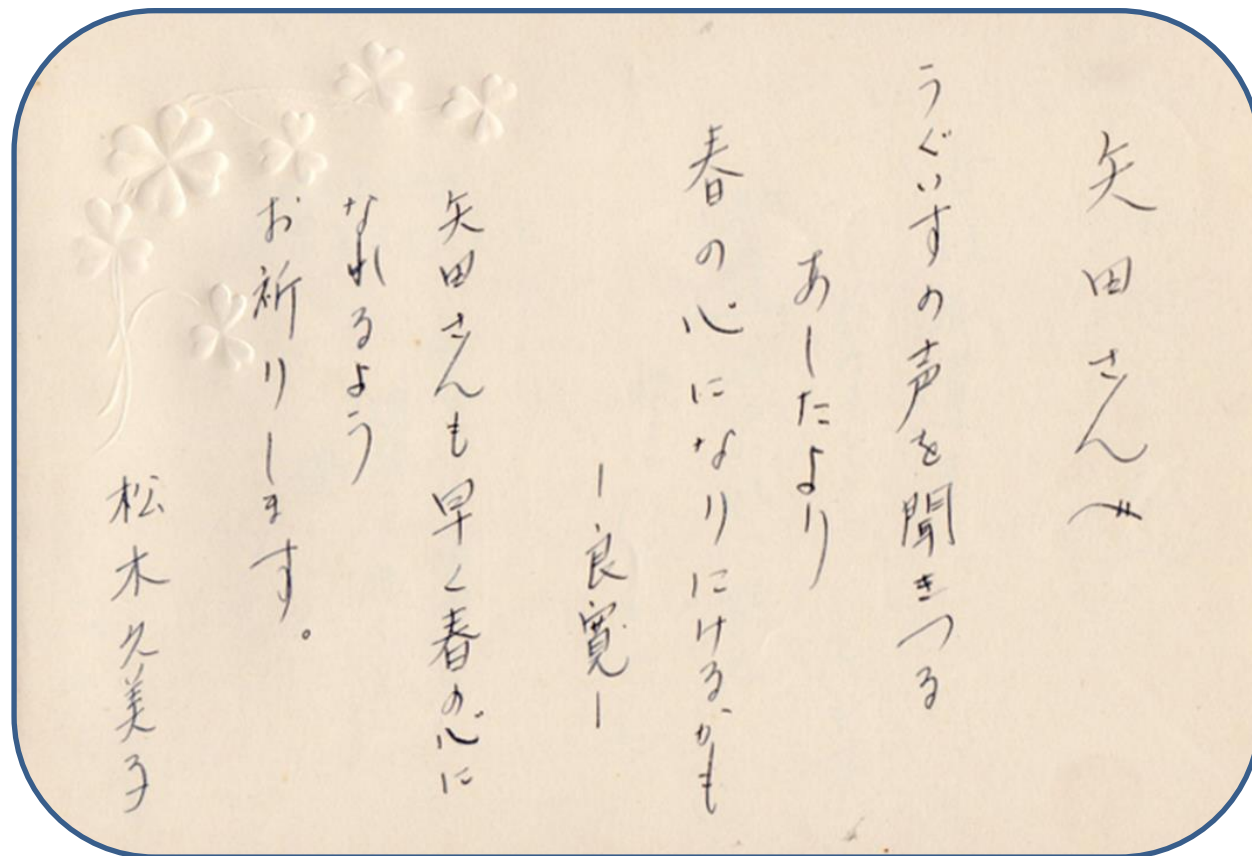 矢田さんへ
うぐいすの声を聞きつる
あしたより
春の心になりにけるかも
―良寛―
矢田さんも早く春の心に
なれるよう
お祈りします。
松木久美子